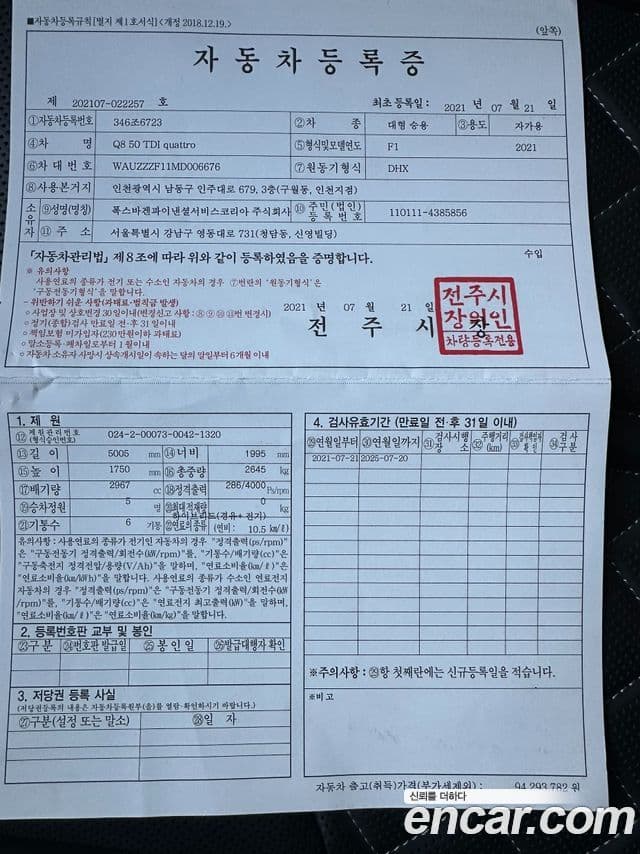 ■자동차등록규칙[별지 제1호서식]<개정 2018.12.19.>
(앞쪽)
자동차등록증
제 202107-022257 호 최초 등록일 : 2021 년 07 월 21 일
①자동차등록번호 346조6723 ②차 종 대형 승용 ③용도 자가용
④차 명 Q8 50 TDI quattro ⑤형식및모델연도 F1 2021
⑥차대번호 WAUZZZF11MD006676 ⑦원동기형식 DHX
⑧사용본거지 인천광역시 남동구 인주대로 679, 3층(구월동, 인천지점)
소유자 ⑨성명(명칭) 폭스바겐파이낸셜서비스코리아 주식회사 ⑩주민(법인)등록번호 110111-4385856
⑪주 소 서울특별시 강남구 영동대로 731(청담동, 신영빌딩)
「자동차관리법」제8조에 따라 위와 같이 등록하였음을 증명합니다. 수입
※ 유의사항
사용연료의 종류가 전기 또는 수소인 자동차의 경우 ⑦번란의 '원동기형식'은
'구동전동기형식'을 말합니다.
- 위반하기 쉬운 사항(과태료·범칙금 발생)
○사업장 및 상호변경 30일이내(변경신고 사항:⑧⑨⑩⑪번 변경시)
○정기(종합)검사 만료일 전·후 31일이내
○책임보험 미가입자(230만원이하 과태료)
○말소등록-폐차일로부터 1월이내
○자동차 소유자 사망시 상속개시일이 속하는 달의 말일부터 6개월 이내
2021 년 07 월 21 일
전주시장
전주시
장원인
차량등록전용
1. 제 원
⑫제원관리번호(형식승인번호) 024-2-00073-0042-1320
⑬길이 5005 mm ⑭너비 1995 mm
⑮높이 1750 mm ⑯총중량 2645 kg
⑰배기량 2967 cc ⑱정격출력 286/4000 Ps/rpm
⑲승차정원 5 명 ⑳최대적재량 0 kg
㉑기통수 6 기통 ㉒연료의종류 하이브리드(경유+전기) (연비: 10.5 ㎞/ℓ)
유의사항 : 사용연료의 종류가 전기인 자동차의 경우 "정격출력(ps/rpm)"
은 "구동전동기 정격출력/회전수(㎾/rpm)"를, "기통수/배기량(cc)"은
"구동축전지 정격전압/용량(V/Ah)"을 말하며, "연료소비율(㎞/ℓ)"은
"연료소비율(㎞/㎾h)"을 말합니다. 사용연료의 종류가 수소인 연료전지
자동차의 경우 "정격출력(ps/rpm)"은 "구동전동기 정격출력/회전수(㎾
/rpm)"를, "기통수/배기량(cc)"은 "연료전지 최고출력(㎾)"을 말하며,
"연료소비율(㎞/ℓ)"은 "연료소비율(㎞/kg)"을 말합니다.
2. 등록번호판 교부 및 봉인
㉓구 분 ㉔번호판 발급일 ㉕봉 인 일 ㉖발급대행자 확인
3. 저당권 등록 사실
(저당권등록의 내용은 자동차등록원부(을)를 열람·확인하시기 바랍니다.)
㉗구분(설정 또는 말소) ㉘일 자
4. 검사유효기간 (만료일 전·후 31일 이내)
㉙연월일부터 ㉚연월일까지 ㉛검사시행장소 ㉜주행거리(km) ㉝ ㉞검사구분
2021-07-21 2025-07-20
※주의사항 : ㉙항 첫째란에는 신규등록일을 적습니다.
※비고
자동차 출고(취득)가격(부가세제외) : 94,293,782 원
신뢰를 더하다
encar.com